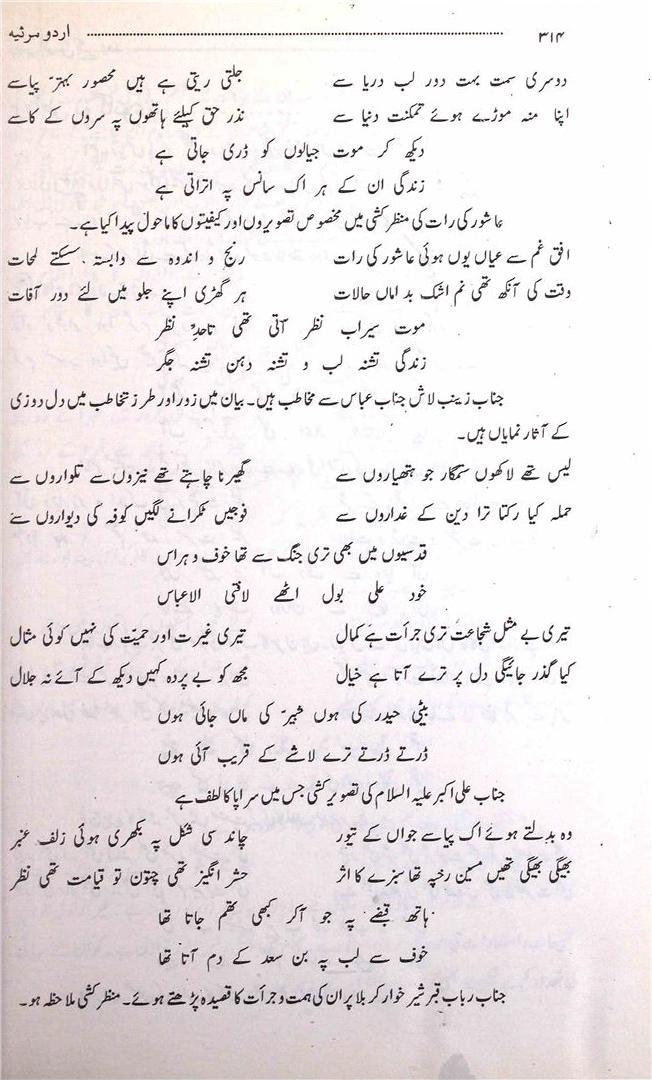 ۳۱۴ اردو مرثیہ
دوسری سمت بہت دور لب دریا سے جلتی ریتی ہے ہیں محصور بہتّر پیاسے
اپنا منہ موڑے ہوئے تمکنت دنیا سے نذر حق کیلئے ہاتھوں پہ سروں کے کاسے
دیکھ کر موت جیالوں کو ڈری جاتی ہے
زندگی ان کے ہر اک سانس پہ اتراتی ہے
عاشور کی رات کی منظر کشی میں مخصوص تصویروں اور کیفیتوں کا ماحول پیدا کیا ہے۔
افق غم سے عیاں یوں ہوئی عاشور کی رات رنج و اندوہ سے وابستہ سسکتے لمحات
وقت کی آنکھ تھی نم اشک بد اماں حالات ہر گھڑی اپنے جلو میں لئے دور آفات
موت سیراب نظر آتی تھی تاحدِّ نظر
زندگی تشنہ لب و تشنہ دہن تشنہ جگر
جناب زینب لاش جناب عباس سے مخاطب ہیں۔ بیان میں زور اور طرز تخاطب میں دل دوزی
کے آثار نمایاں ہیں۔
لیس تھے لاکھوں ستمگار جو ہتھیاروں سے گھیرنا چاہتے تھے نیزوں سے تلواروں سے
حملہ کیا رکتا ترا دین کے غداروں سے فوجیں ٹکرانے لگیں کوفہ کی دیواروں سے
قدسیوں میں بھی تری جنگ سے تھا خوف و ہراس
خود علی بول اٹھے لافتی الا عباس
تیری بے مثل شجاعت تری جرأت ہے کمال تیری غیرت اور حمیّت کی نہیں کوئی مثال
کیا گذر جائیگی دل پر ترے آتا ہے خیال مجھ کو بے پردہ کہیں دیکھ کے آئے نہ جلال
بیٹی حیدر کی ہوں شبیرؑ کی ماں جائی ہوں
ڈرتے ڈرتے ترے لاشے کے قریب آئی ہوں
جناب علی اکبر علیہ السلام کی تصویر کشی جس میں سراپا کا لطف ہے
وہ بدلتے ہوئے اک پیاسے جواں کے تیور چاند سی شکل پہ بکھری ہوئی زلف عنبر
بھیگی بھیگی تھیں مسیں رخپہ تھا سبزے کا اثر حشر انگیز تھی چتون تو قیامت تھی نظر
ہاتھ قبضے پہ جو آکر کبھی تھم جاتا تھا
خوف سے لب پہ بن سعد کے دم آتا تھا
جناب رباب قبر شیر خوار کربلا پر ان کی ہمت و جرأت کا قصیدہ پڑھتے ہوئے۔ منظر کشی ملاحظہ ہو۔